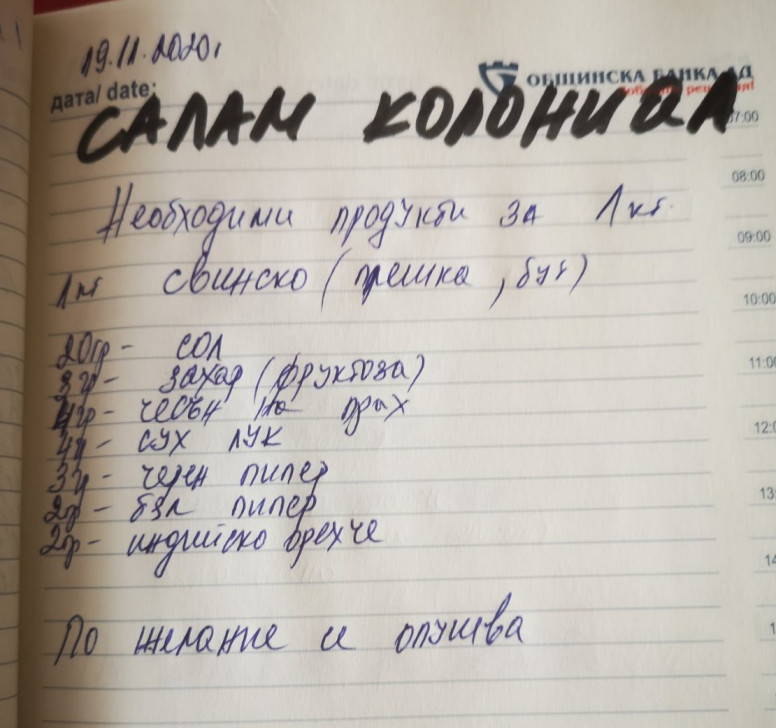 19.11.2020г
дата/ date:
ОБЩИНСКА БАНКА АД
САЛАМ КОЛОНИАЛ
07:00
Необходими продукти за 1 кг.
08:00
09:00
1 кг свинско (плешка, бут)
10:00
20гр - СОЛ
3гр - захар (фруктоза)
11:00
4гр - чесън на прах
4гр - сух лук
12:0
3гр - черен пипер
2гр - бял пипер
13:
2гр - индийско орехче
14
По желание се опушва
1